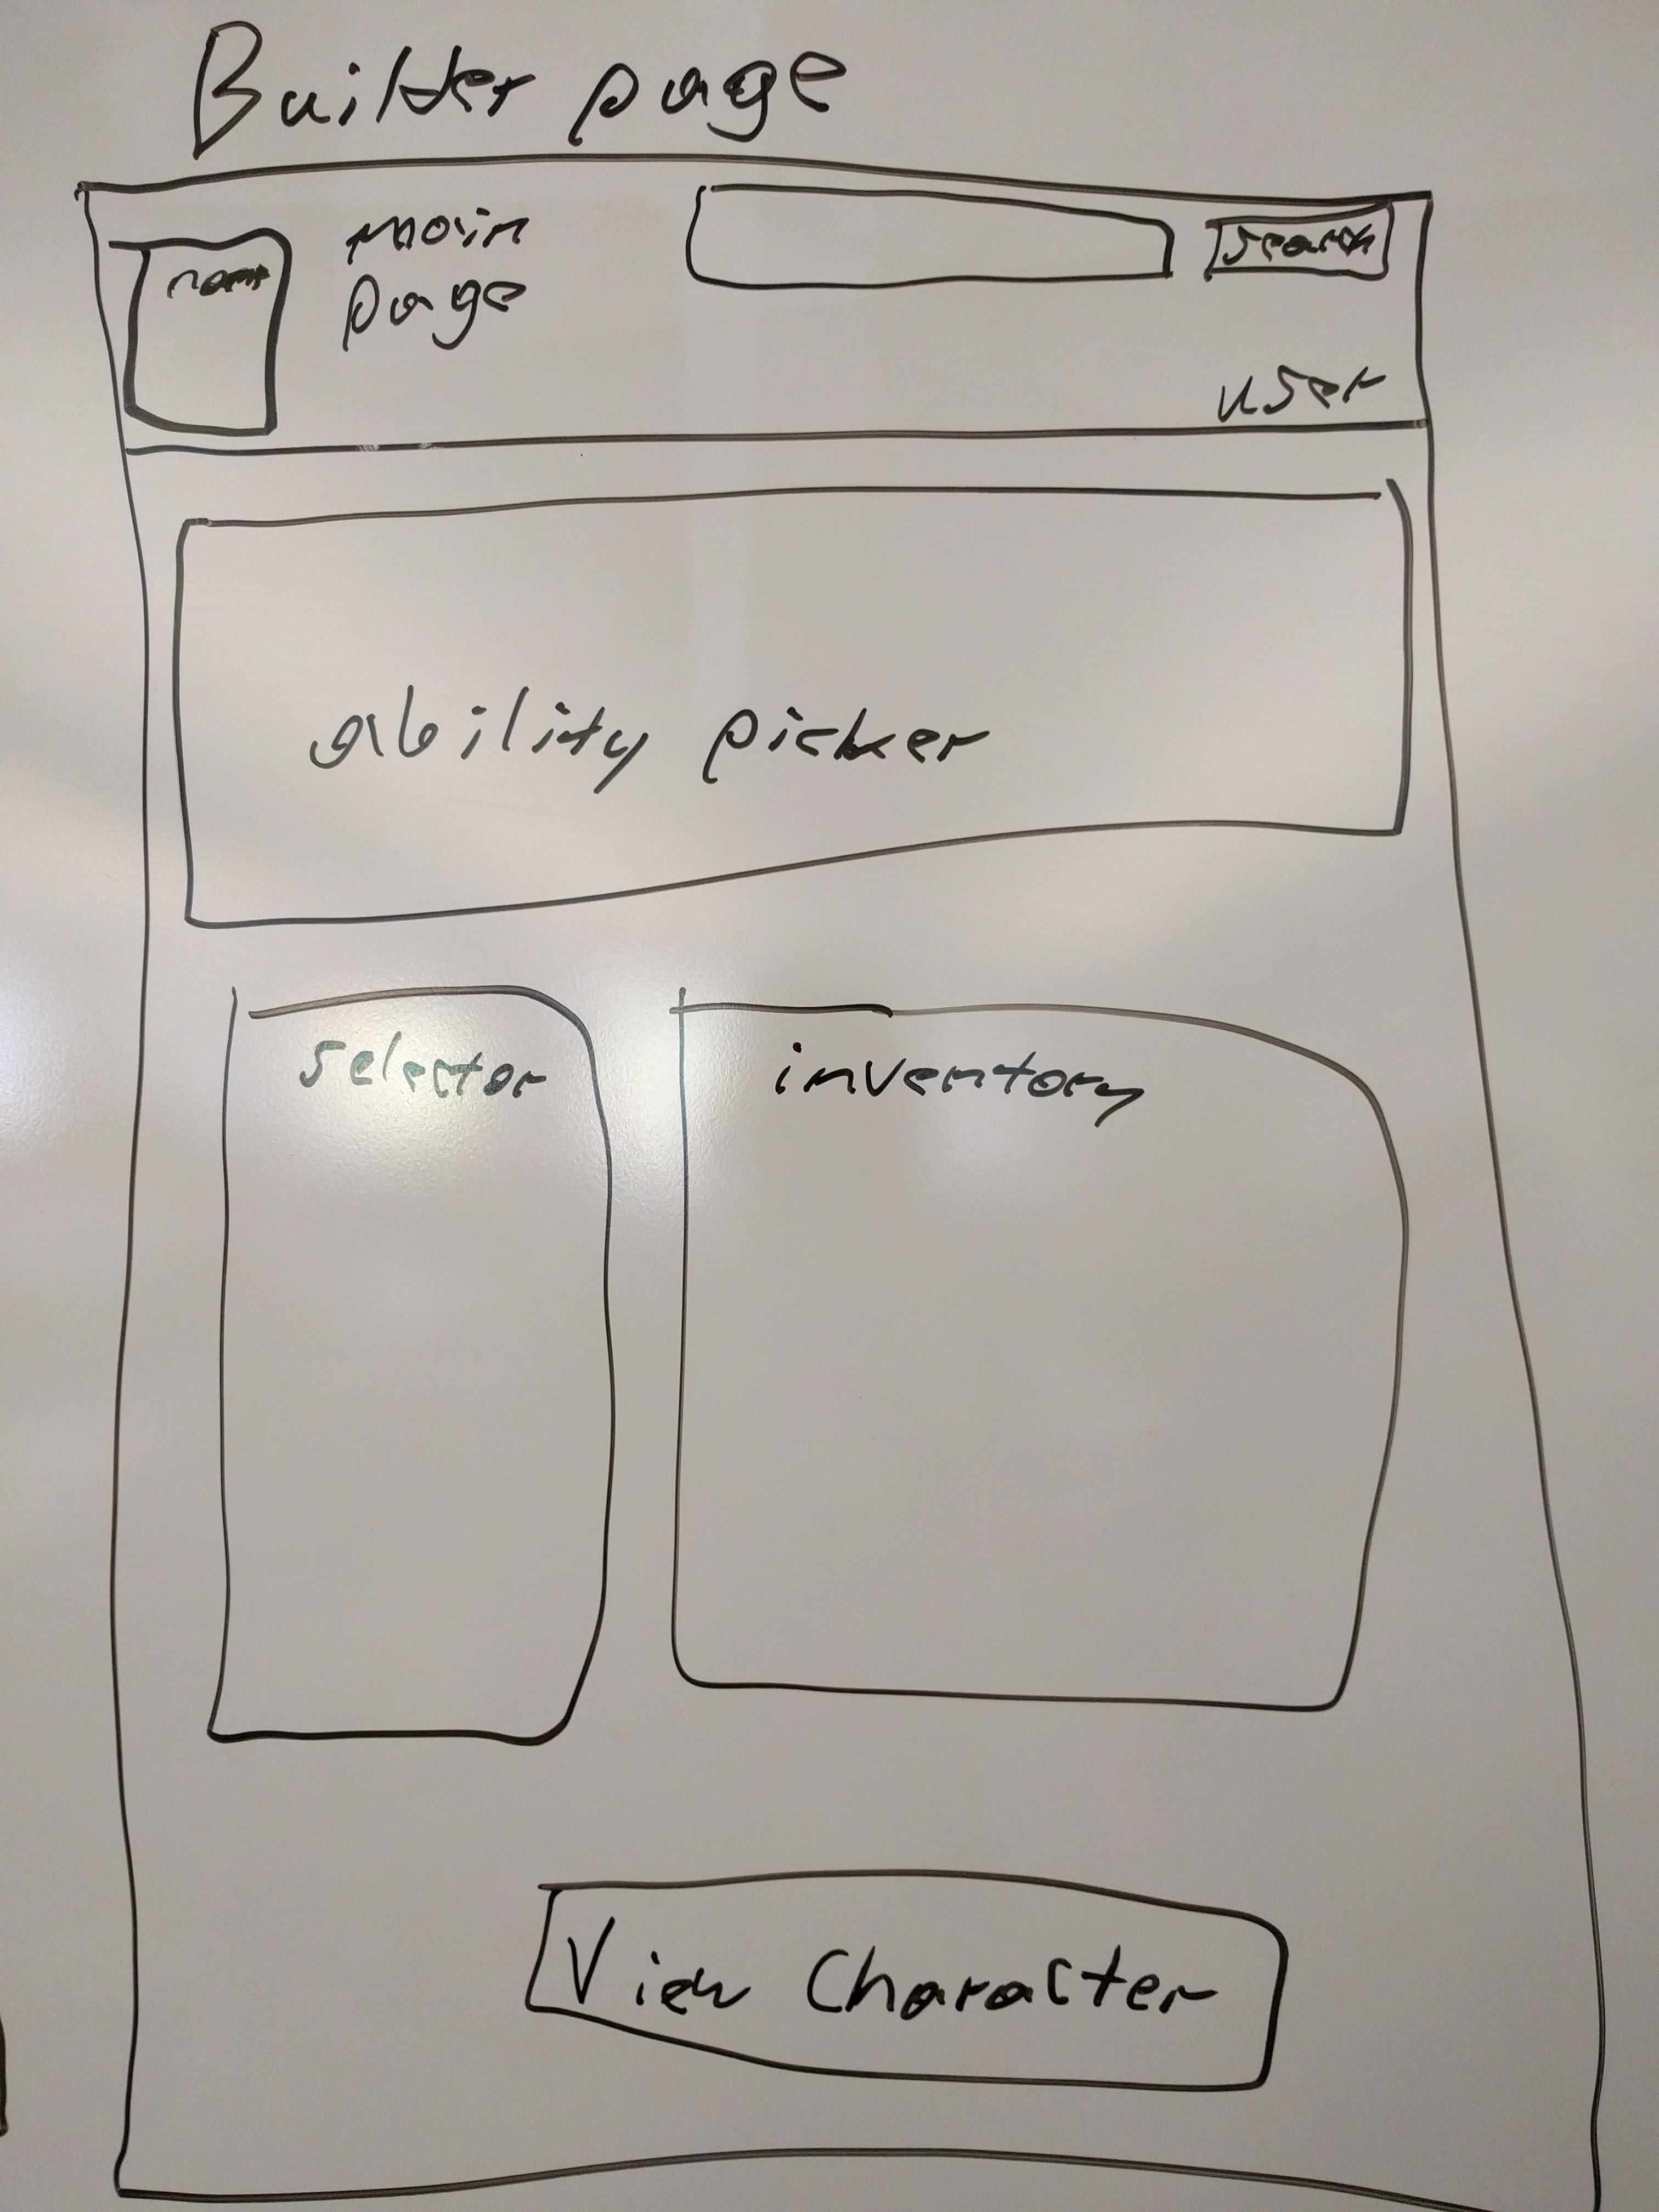 Builder page
name
main
page
search
user
ability picker
selector
inventory
View Character